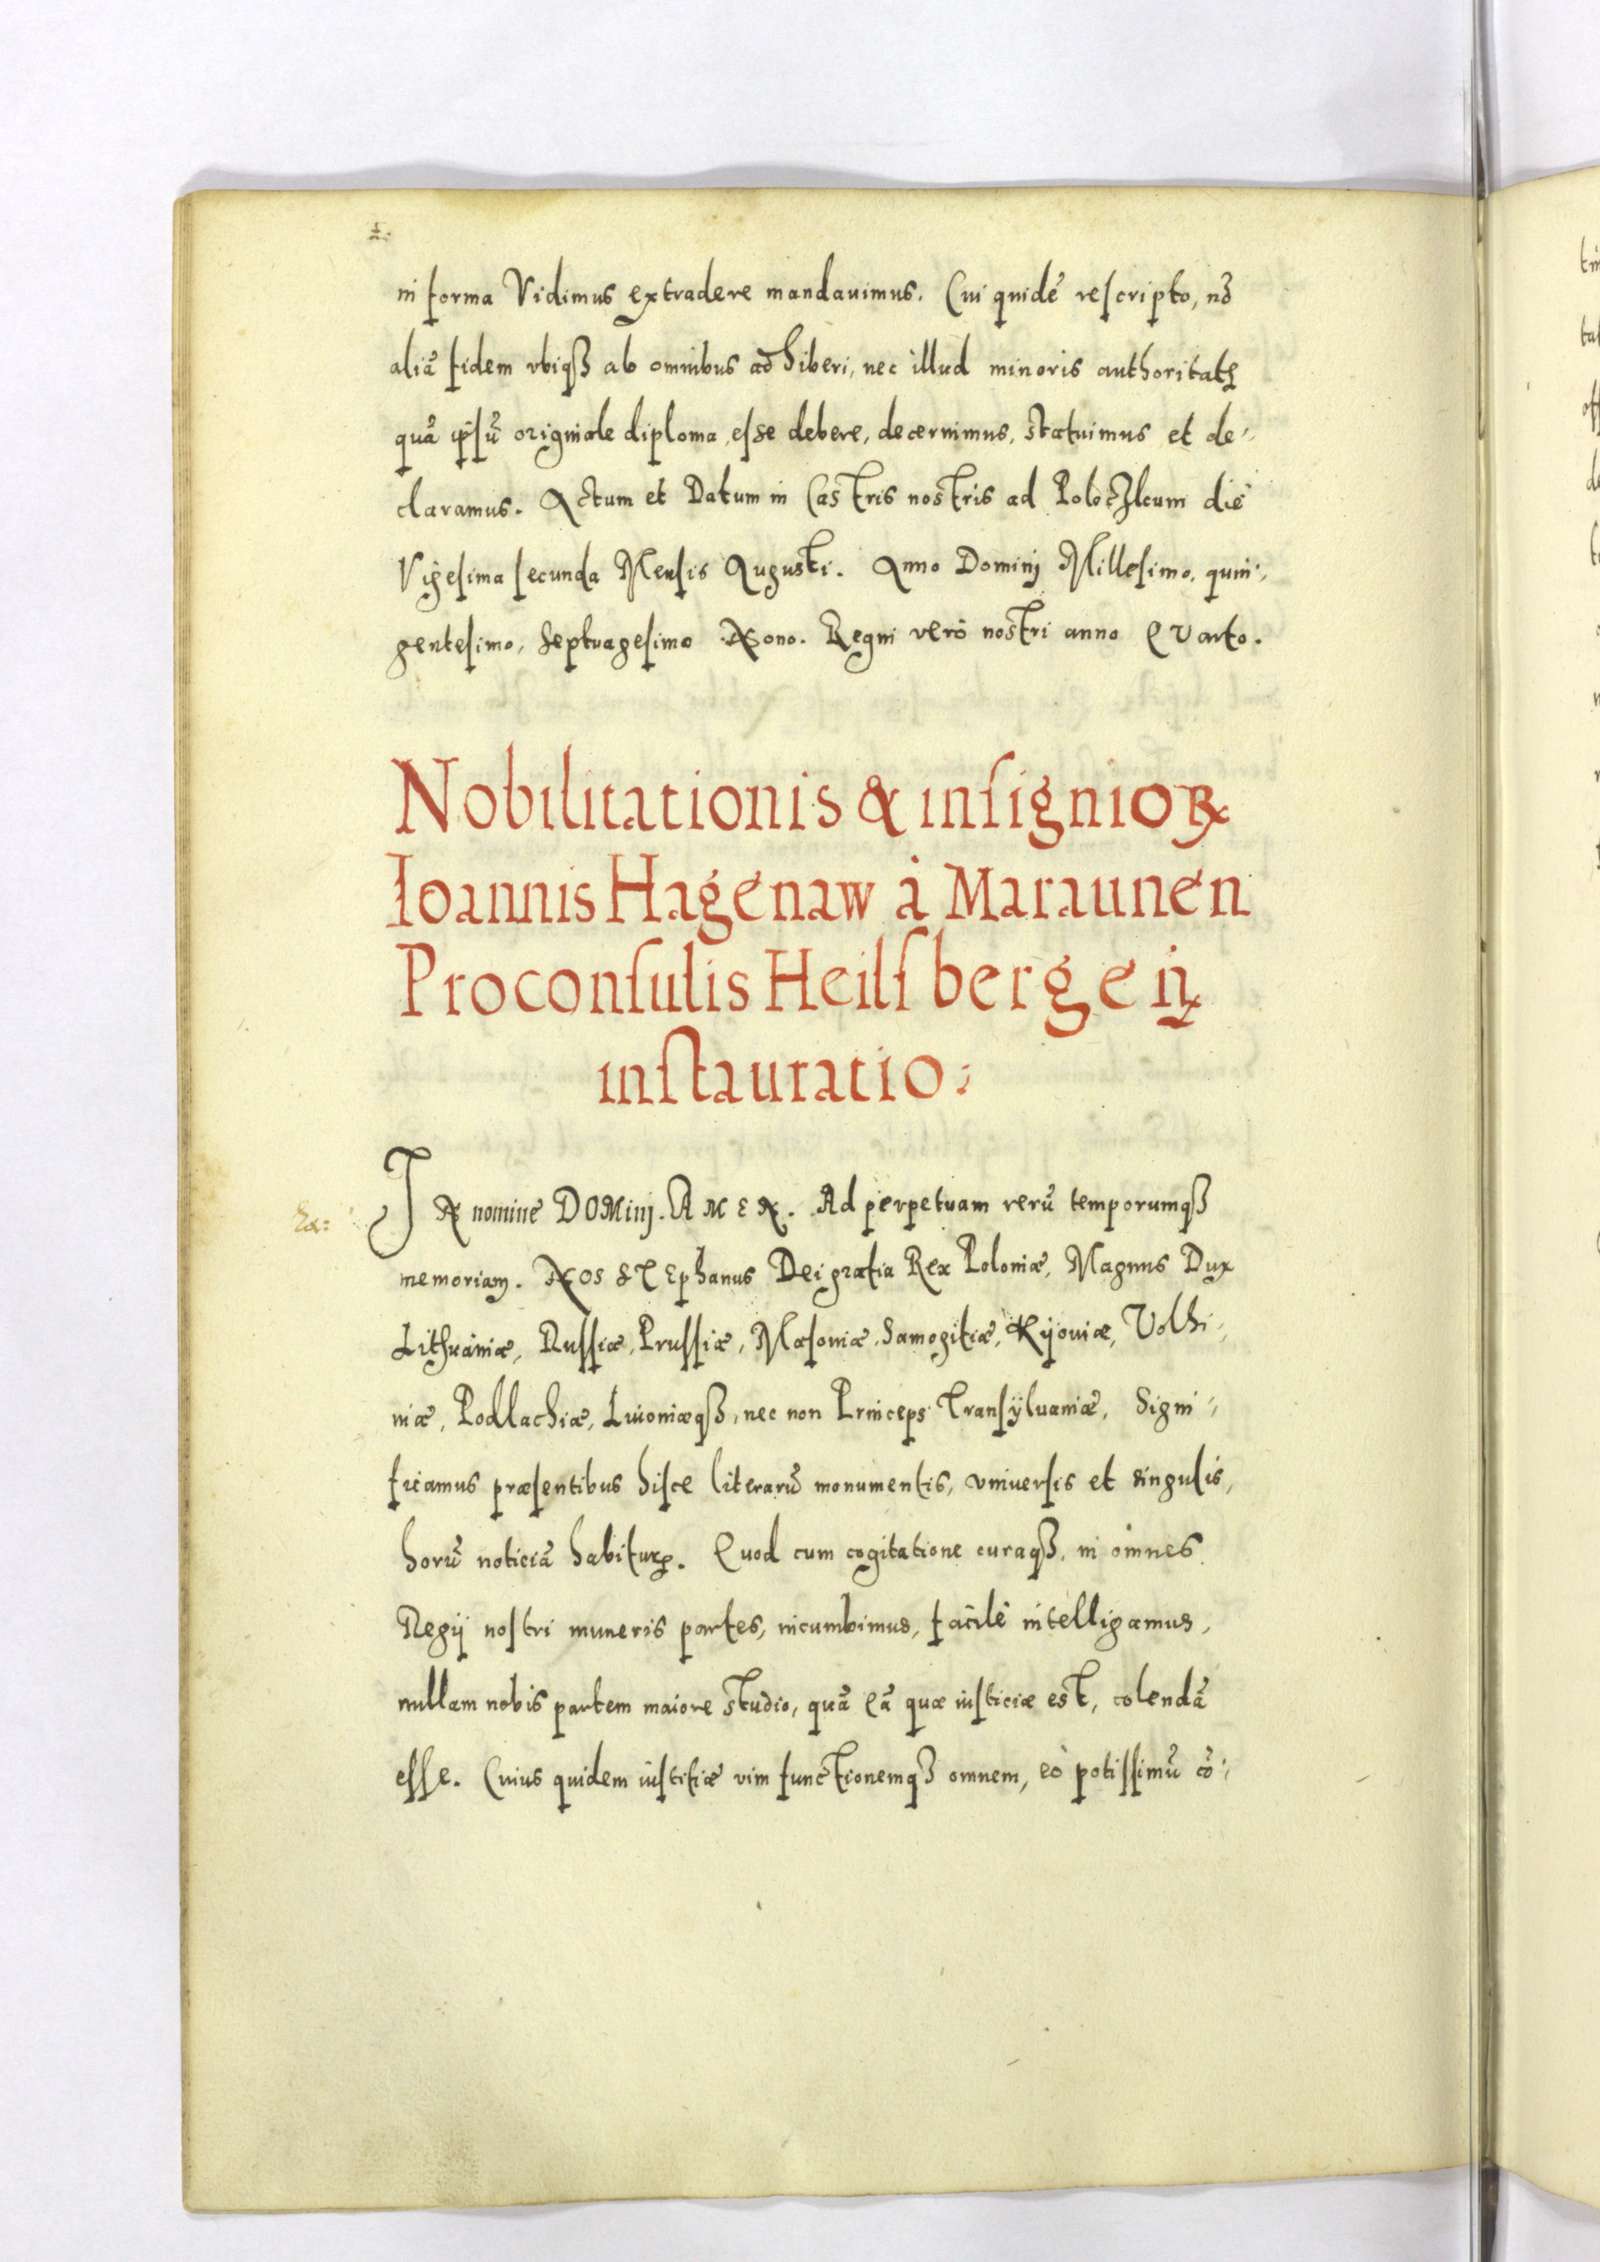 in forma Vidimus extradere mandauimus. Cui quidē rescripto, nō
aliā fidem vbiqꝫ ab omnibus adhiberi, nec illud minoris authoritatꝭ
quā ipsū originale diploma, esse debere, decernimus, statuimus et de-
claramus. Actum et Datum in Castris nostris ad Poloczkum die
Vigesima secunda Mensis Augusti. Anno Dominij Millesimo, quin-
gentesimo, Septuagesimo Nono. Regni verò nostri anno Quarto.
Nobilitationis & insignioꝝ
Ioannis Hagenaw à Maraunen
Proconsulis Heilsbergeñ
instauratio:
IN nominè DOMinj. AMEN. Ad perpetuam rerū temporumqꝫ
memoriam. NOS STEphanus Dei gratia Rex Poloniæ, Magnus Dux
Lithuaniæ, Russiæ, Prussiæ, Masoniæ, Samogitiæ, Kijouiæ, Volhi-
niæ, Podlachiæ, Liuoniæqꝫ, nec non Princeps Transÿluaniæ, Signi-
ficamus præsentibus hisce literarū monumentis, vniuersis et singulis,
horū noticiā habiturꝭ. Quod cum cogitatione curaqꝫ, in omnes
Regij nostri muneris partes, incumbimus, facilè intelligamus,
nullam nobis partem maiore studio, quā eā quæ iusticiæ est, colendā
esse. Cuius quidem iustitiæ vim functionemqꝫ omnem, eò potissimū cō-